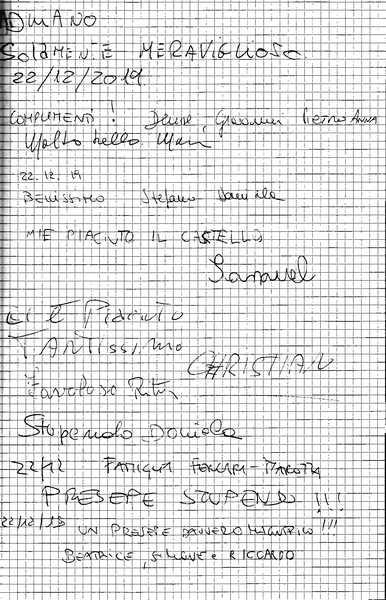 ADRIANO
SOLAMENTE MERAVIGLIOSO
22/12/2019
COMPLIMENTI! Denise, Giovanni Pietro Anna
Molto bello
22.12.19
BELLISSIMO Stefano Daniela
MIE PIACIUTO IL CASTELLO
Samuel
CI È PIACIUTO
TANTISSIMO
CHRISTIAN
Favoloso
Stupendo Daniela
22/12 FAMIGLIA FERRARI-MAROTTA
PRESEPE STUPENDO!!!
22/12/19 UN PRESEPE DAVVERO MAGNIFICO!!!
BEATRICE, SIMONE e RICCARDO